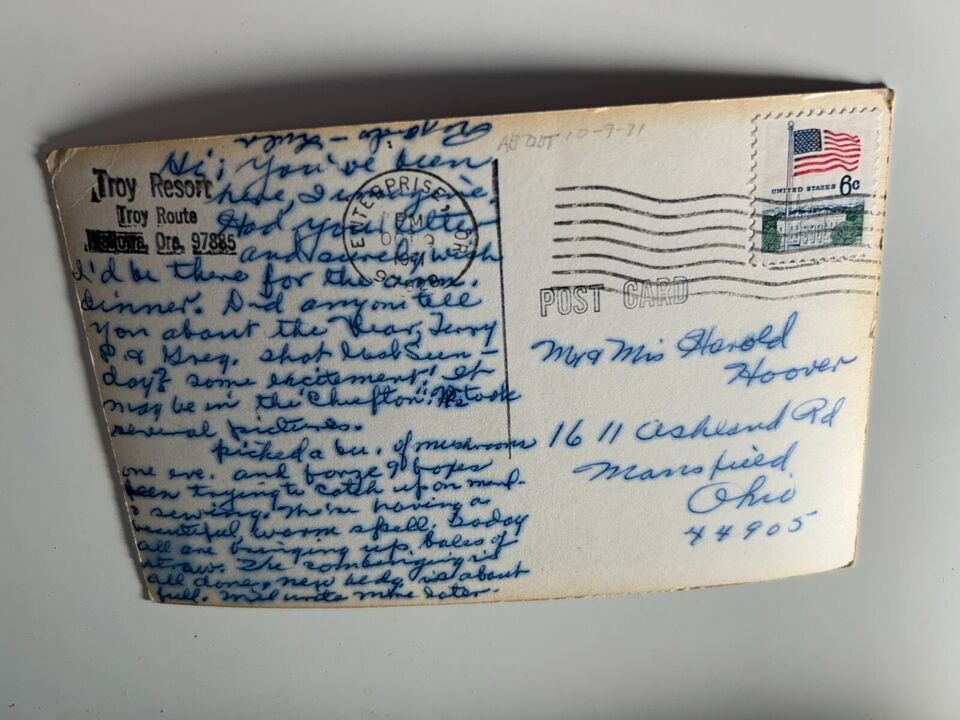 Regards -
ABOUT 10-9-71
Hi; You've been
here, I imagine.
Had your letter
and surely wish
I'd be there for the ann.
dinner. Did anyone tell
you about the bear, Terry
P & Greg. shot last Sun-
day? some excitement! It
may be in the Chiefton. took
several pictures.
picked a bu. of mushrooms
one eve. and froze 9 boxes
been trying to catch up on mend-
sewing. We're having a
beautiful, warm spell. Today
all are bringing up bales of
straw. The combining is
all done, new bldg is about
full. Will write more later.
Troy Resort
Troy Route
Ore. 97885
ENTERPRISE, OR
PM
1971
UNITED STATES 6c
POST CARD
Mr & Mrs Harold
Hoover
1611 Ashland Rd
Mansfield
Ohio
44905